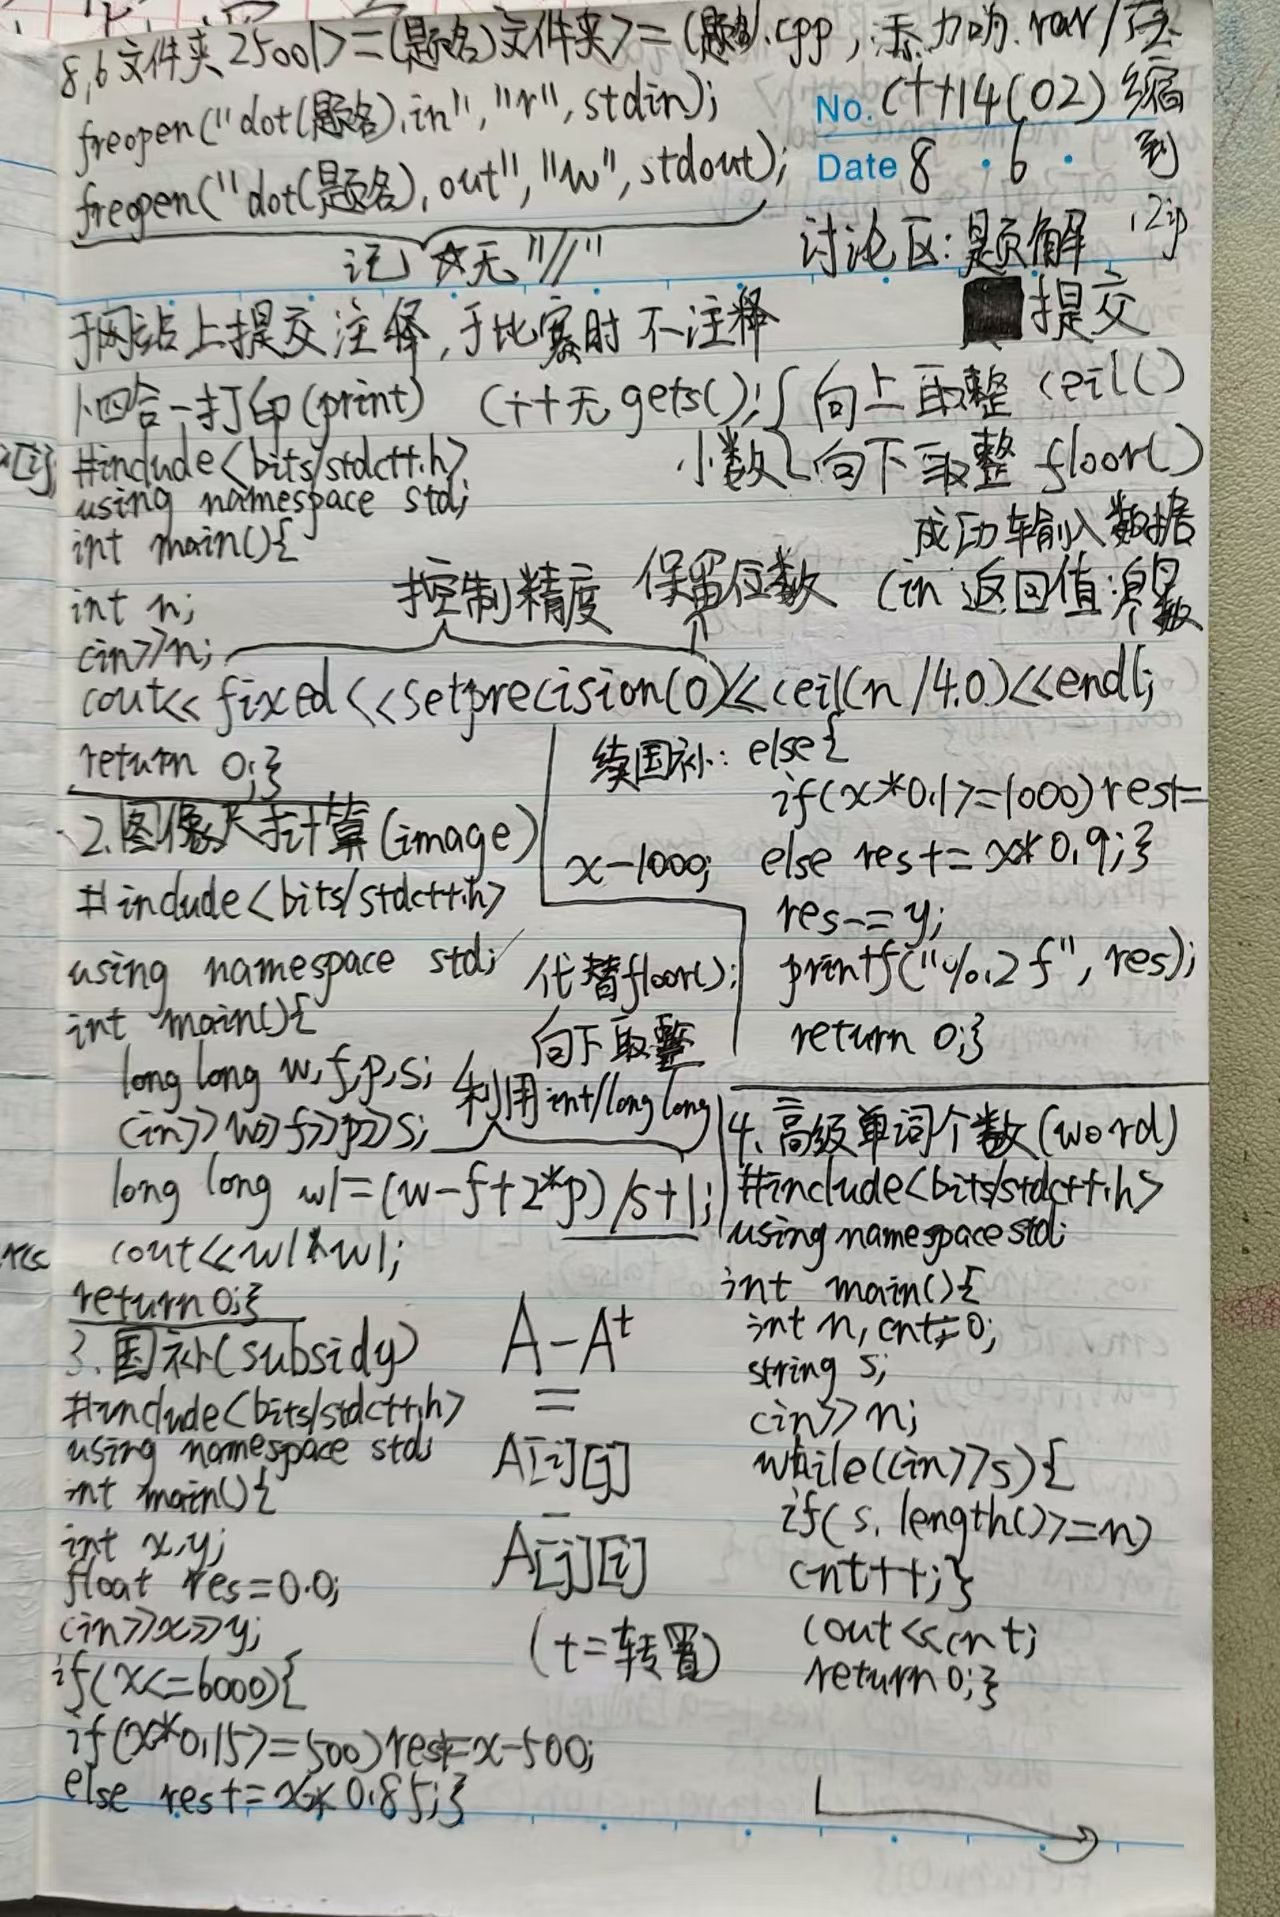 8,6 文件夹 25001>=(题名)文件夹>=(题名).cpp, 添加响.rar/压
缩
到
.zip
No. C++14(02)
Date 8 · 6 ·
freopen("dot(题名).in","r",stdin);
freopen("dot(题名).out","w",stdout);
记 ☆无"//"
讨论区:题解
提交
于网站上提交注释,于比赛时不注释
1.四合一打印(print)
C++无gets();
小数
向上取整 ceil()
向下取整 floor()
#include<bits/stdc++.h>
using namespace std;
int main(){
int n;
cin>>n;
控制精度 保留位数
成功输入数据
cin 返回值:个数
cout<<fixed<<setprecision(0)<<ceil(n/4.0)<<endl;
return 0;}
2.图像尺寸计算(image)
#include<bits/stdc++.h>
using namespace std;
int main(){
long long w,f,p,s;
cin>>w>>f>>p>>s;
代替floor();
向下取整
利用int/long long
long long w1=(w-f+2*p)/s+1;
cout<<w1*w1;
return 0;}
3.国补(subsidy)
#include<bits/stdc++.h>
using namespace std;
int main(){
int x,y;
float res=0.0;
cin>>x>>y;
if(x<=6000){
if(x*0.15>=500)res+=x-500;
else res+=x*0.85;}
A-A^t
=
A[i][j]
-
A[j][i]
(t=转置)
续国补: else{
if(x*0.1>=1000)res+=
x-1000;
else res+=x*0.9;}
res-=y;
printf("%.2f",res);
return 0;}
4.高级单词个数(word)
#include<bits/stdc++.h>
using namespace std;
int main(){
int n,cnt=0;
string s;
cin>>n;
while(cin>>s){
if(s.length()>=n)
cnt++;}
cout<<cnt;
return 0;}